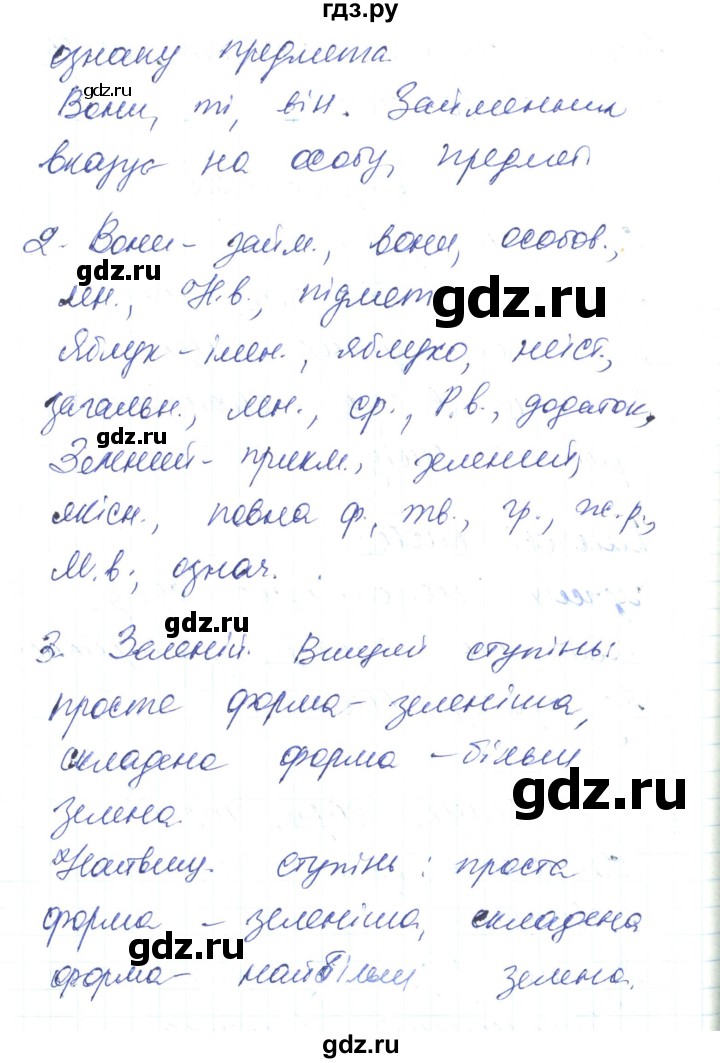 гдз.ру
ознаку предмета.
gdz.ru
Вони, ті, він. Займенник
вказує на особу, предмет
2. Вони – займ., вони, особов.,
gdz.ru
мн., Н.в., підмет
gdz.ru
Яблук – імен., яблуко, неіст.,
загальн., мн., ср., Р.в., додаток,
gdz.ru
Зелений – прикм., зелений,
якісн., повна ф., тв., гр., ж.р.,
М.в., означ.
gdz.ru
3. Зеленій. Вищий ступінь:
просте форма – зеленіша,
складена форма – більш
gdz.ru
зелена.
Найвищ. ступінь: проста
форма – зеленіша, складена
gdz.ru
форма – найбільш зелена.
gdz.ru